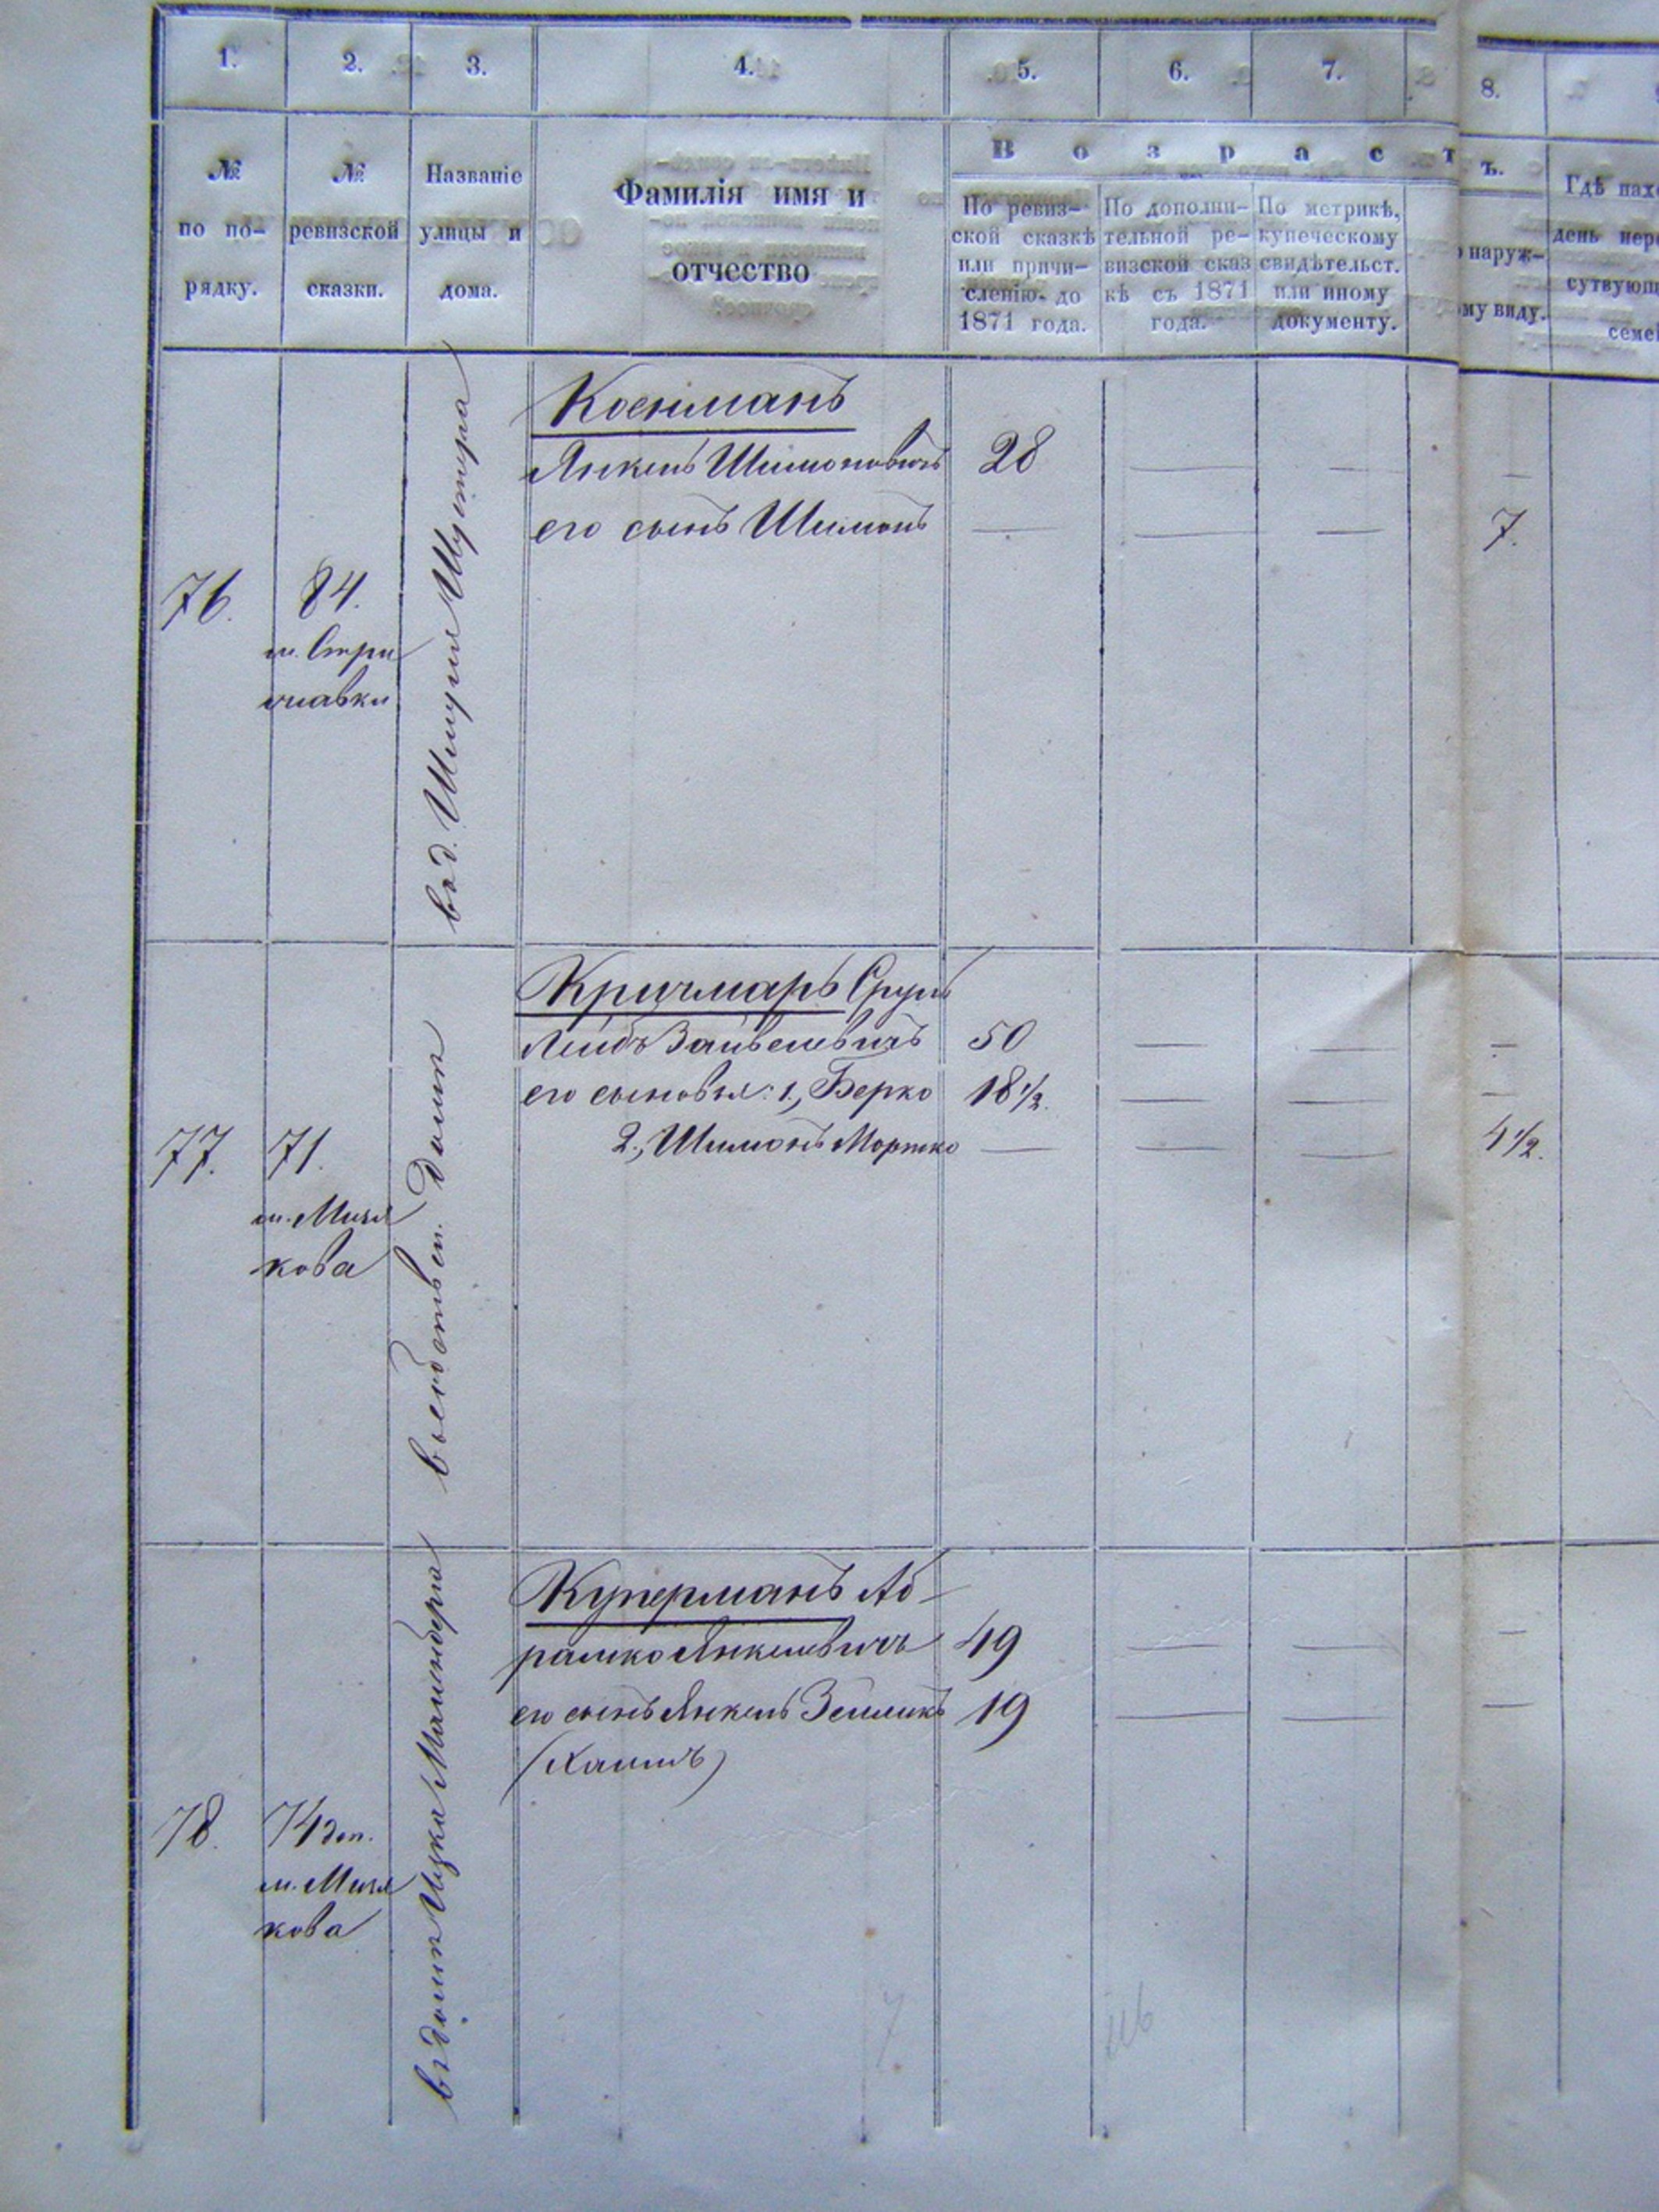 1. 2. 3. 4. 5. 6. 7. 8.
№ по по-
рядку.
№ ревизской
сказки.
Названіе
улицы и
дома.
Фамилія имя и
отчество
Возраст
ъ.
По ревиз-
ской сказкѣ
или причи-
сленію до
1871 года.
По дополни-
тельной ре-
визской сказ
кѣ съ 1871
года.
По метрикѣ,
купеческому
свидѣтельст.
или иному
документу.
наруж-
ому виду.
Гдѣ нахо
день пер
сутвующ
семе
76.
84.
м. Стри
жавки
в д. Шмуля
Коенманъ
Янкель Шимоновичъ 28 — — —
его сынъ Шимонъ — — — 7.
77.
71.
м. Мизя
кова
в собствен. домѣ
Кричмаръ Сруль
Лейбъ Зайвелевичъ 50 — — —
его сыновья: 1., Берко 18 1/2. — — —
2., Шимонъ Мортко — — — 4 1/2.
78.
74 доп.
м. Мизя
кова
въ домѣ Ицка
Куперманъ Аб-
рамко Янкелевичъ 49 — — —
его сынъ Янкель Зейликъ 19 — — —
(Хаимъ)